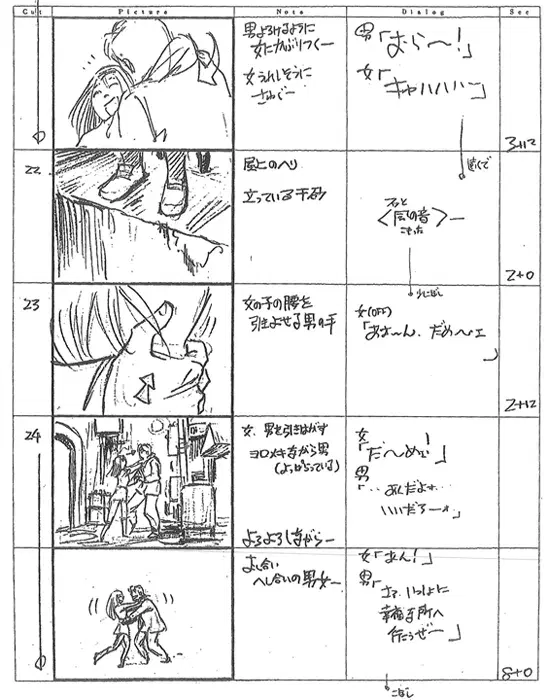 Cut Picture Note Dialog Sec
男よろけるように
女にかぶりつくー
女うれしそうに
さわぐー
男「おら〜!」
女「キャハハハ〜」
3+12
22
屋上のヘリ
立っている千砂
遠くで
フッと
〈風の音〉ー
こもった
2+0
23
女の子の腰を
引きよせる男の手
少しこぼし
女(OFF)
「あは〜ん、だめ〜ェ
」
2+12
24
女、男を引きはがす
ヨロメキながら男
(よっぱらっている)
よろよろしながらー
女
「だ〜めェ!」
男
いいだろー
」
おし合い
へし合いの男女ー
女「あん!」
男「
さァ、いっしょに
幸福な所へ
行こうぜー
」
8+0
こぼし